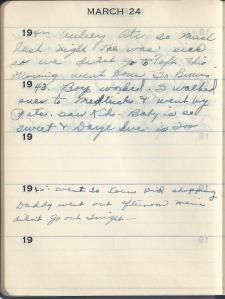 MARCH 24
1944. Aubrey Ate so much
last night He was sick
so we didnt go to Taft this
Morning went Down To
1943. Boys worked. I walked
over to & went by
Pats. saw Kids. Baby is so
sweet & Darye Sue is Too
19
1945. went to town Did shopping
Daddy went out afternoon
didn't go out tonight—
19